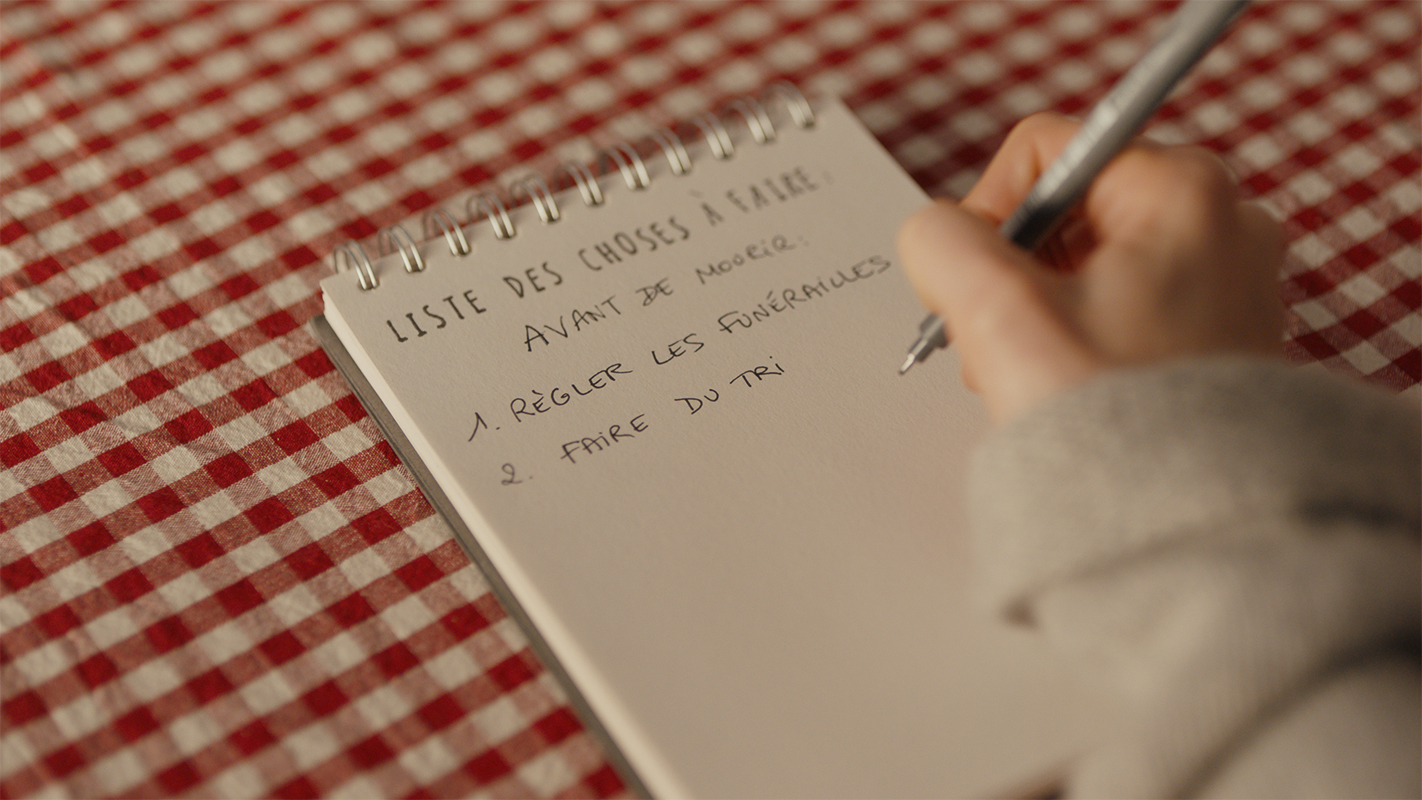 LISTE DES CHOSES À FAIRE:
AVANT DE MOURIR:
1. RÈGLER LES FUNÉRAILLES
2. FAIRE DU TRI